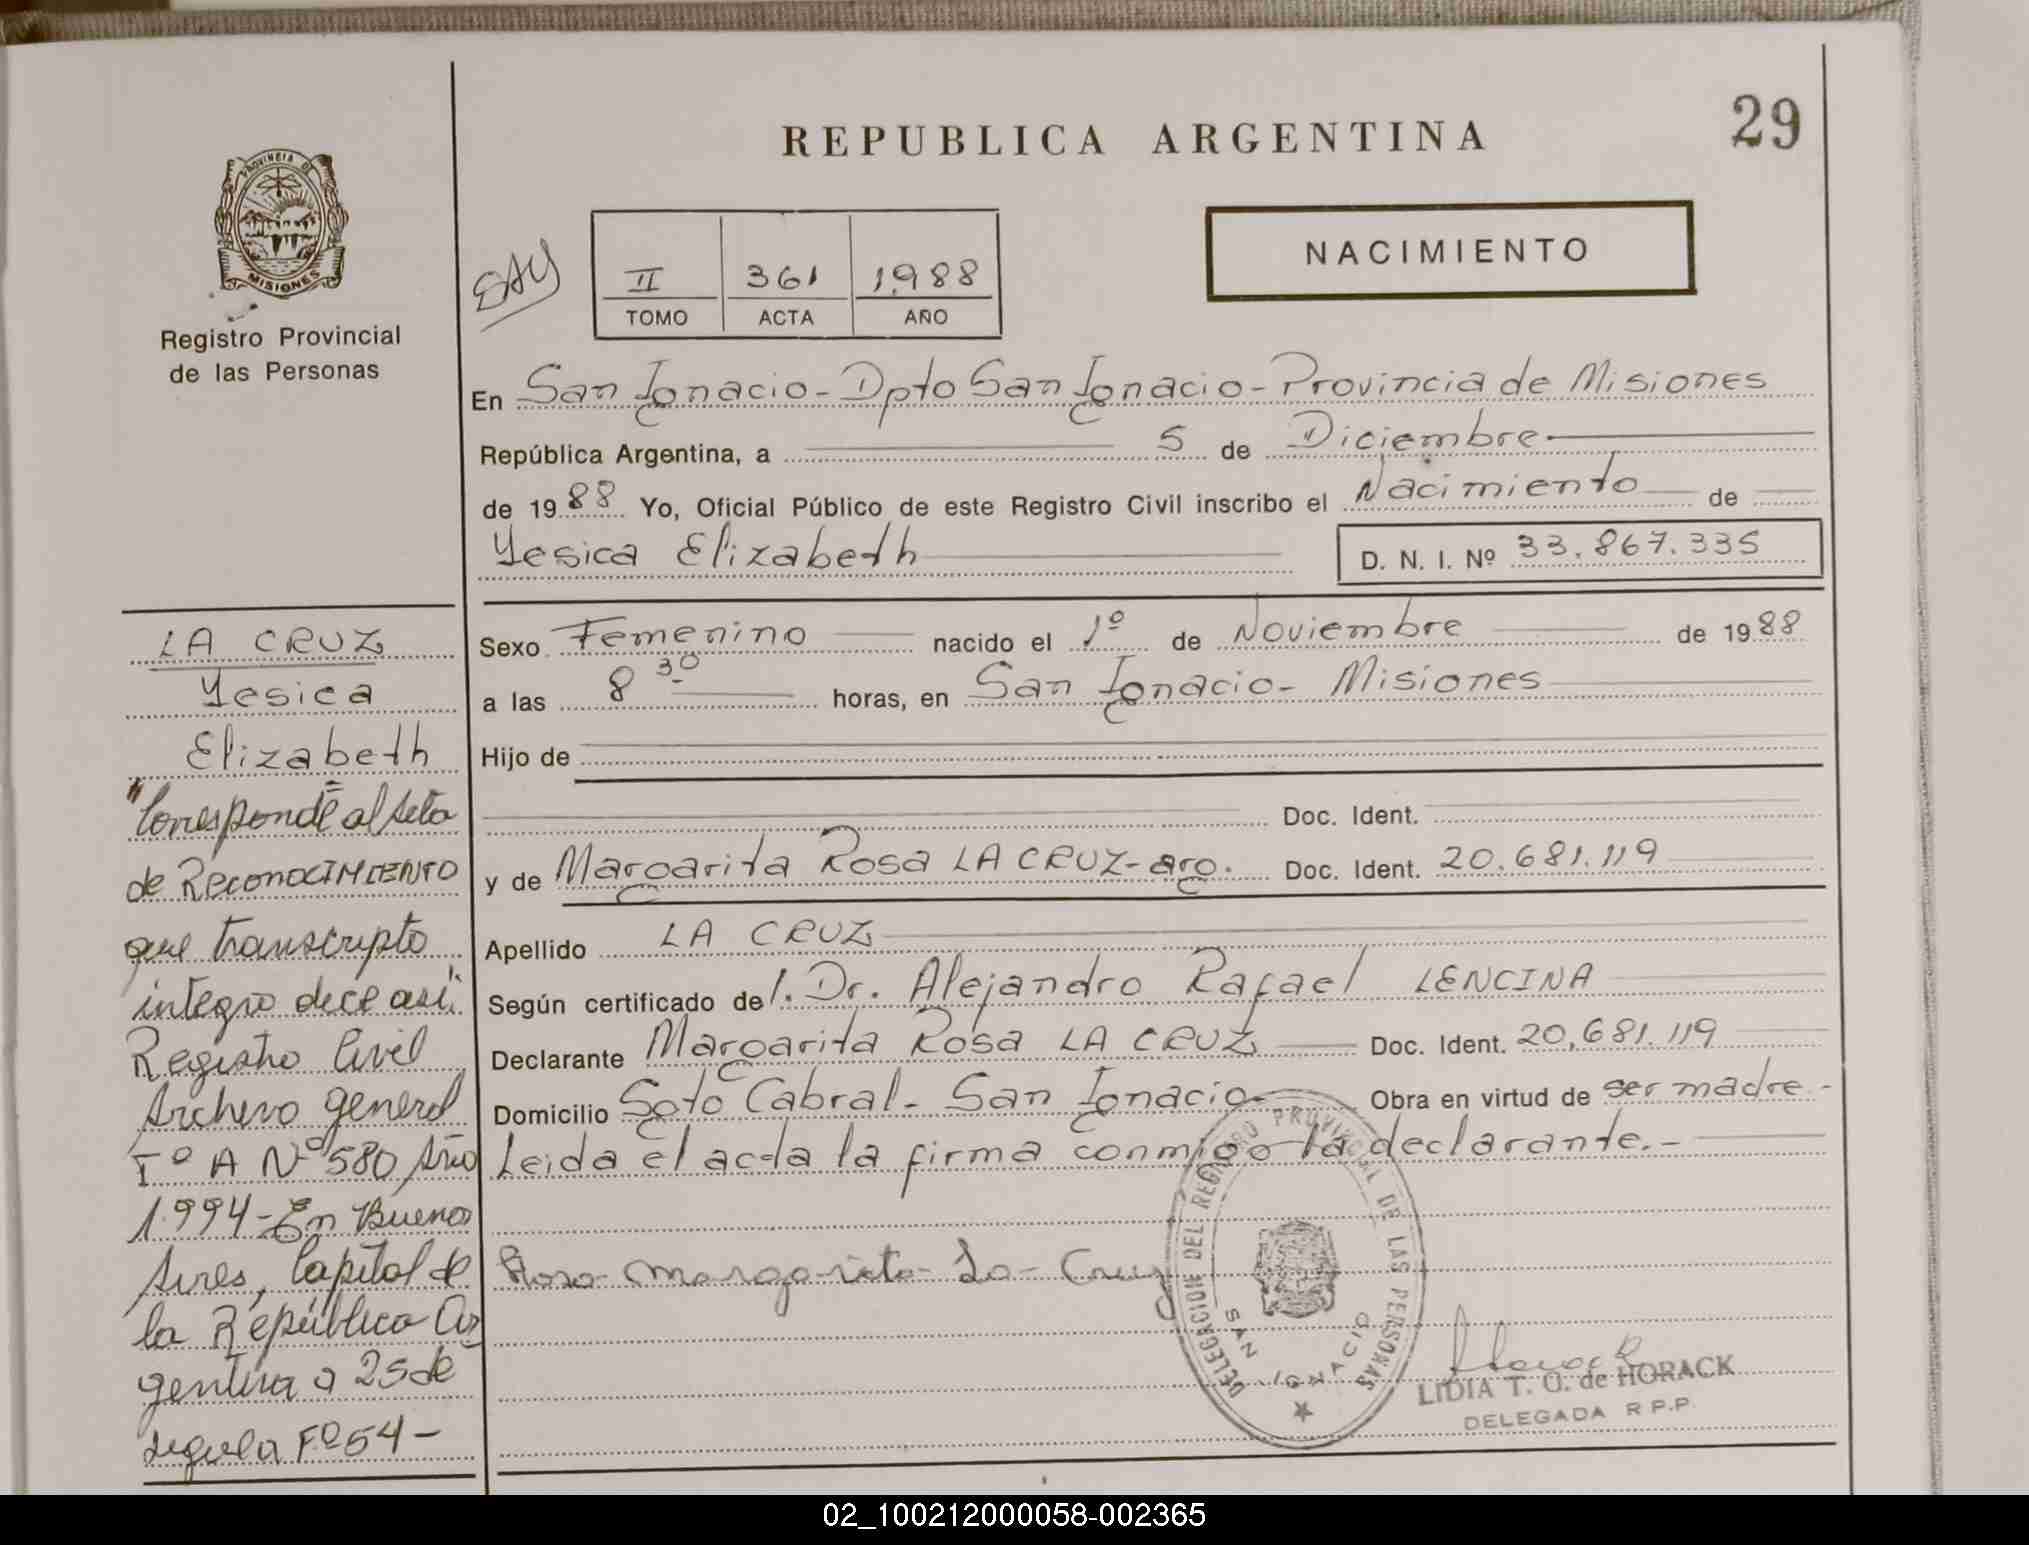 REPUBLICA ARGENTINA
29
PROVINCIA DE
MISIONES
Registro Provincial
de las Personas
II 361 1.988
TOMO ACTA AÑO
NACIMIENTO
En San Ignacio - Dpto San Ignacio - Provincia de Misiones
República Argentina, a 5 de Diciembre
de 1988 Yo, Oficial Público de este Registro Civil inscribo el Nacimiento de
Yesica Elizabeth D. N. I. Nº 33.867.335
Sexo Femenino nacido el 1º de Noviembre de 1988
a las 8 30 horas, en San Ignacio - Misiones
Hijo de
Doc. Ident.
y de Margarita Rosa LA CRUZ - arg. Doc. Ident. 20.681.119
Apellido LA CRUZ
Según certificado de l. Dr. Alejandro Rafael LENCINA
Declarante Margarita Rosa LA CRUZ Doc. Ident. 20.681.119
Domicilio Soto Cabral - San Ignacio - Obra en virtud de ser madre.-
Leida el acta la firma conmigo la declarante.-
Rosa Margarita La Cruz
DELEGACION DEL REGISTRO PROVINCIAL DE LAS PERSONAS
SAN IGNACIO
LIDIA T. O. de HORACK
DELEGADA R.P.P.
LA CRUZ
Yesica
Elizabeth
"Corresponde al Acta
de RECONOCIMIENTO
que transcripto
integro dice asi:
Registro Civil
Archivo general
Tº A Nº 580 Año
1.994 - En Buenos
Aires, Capital de
la República Ar
gentina a 25 de
sigue a Fº 54 -
02_100212000058-002365